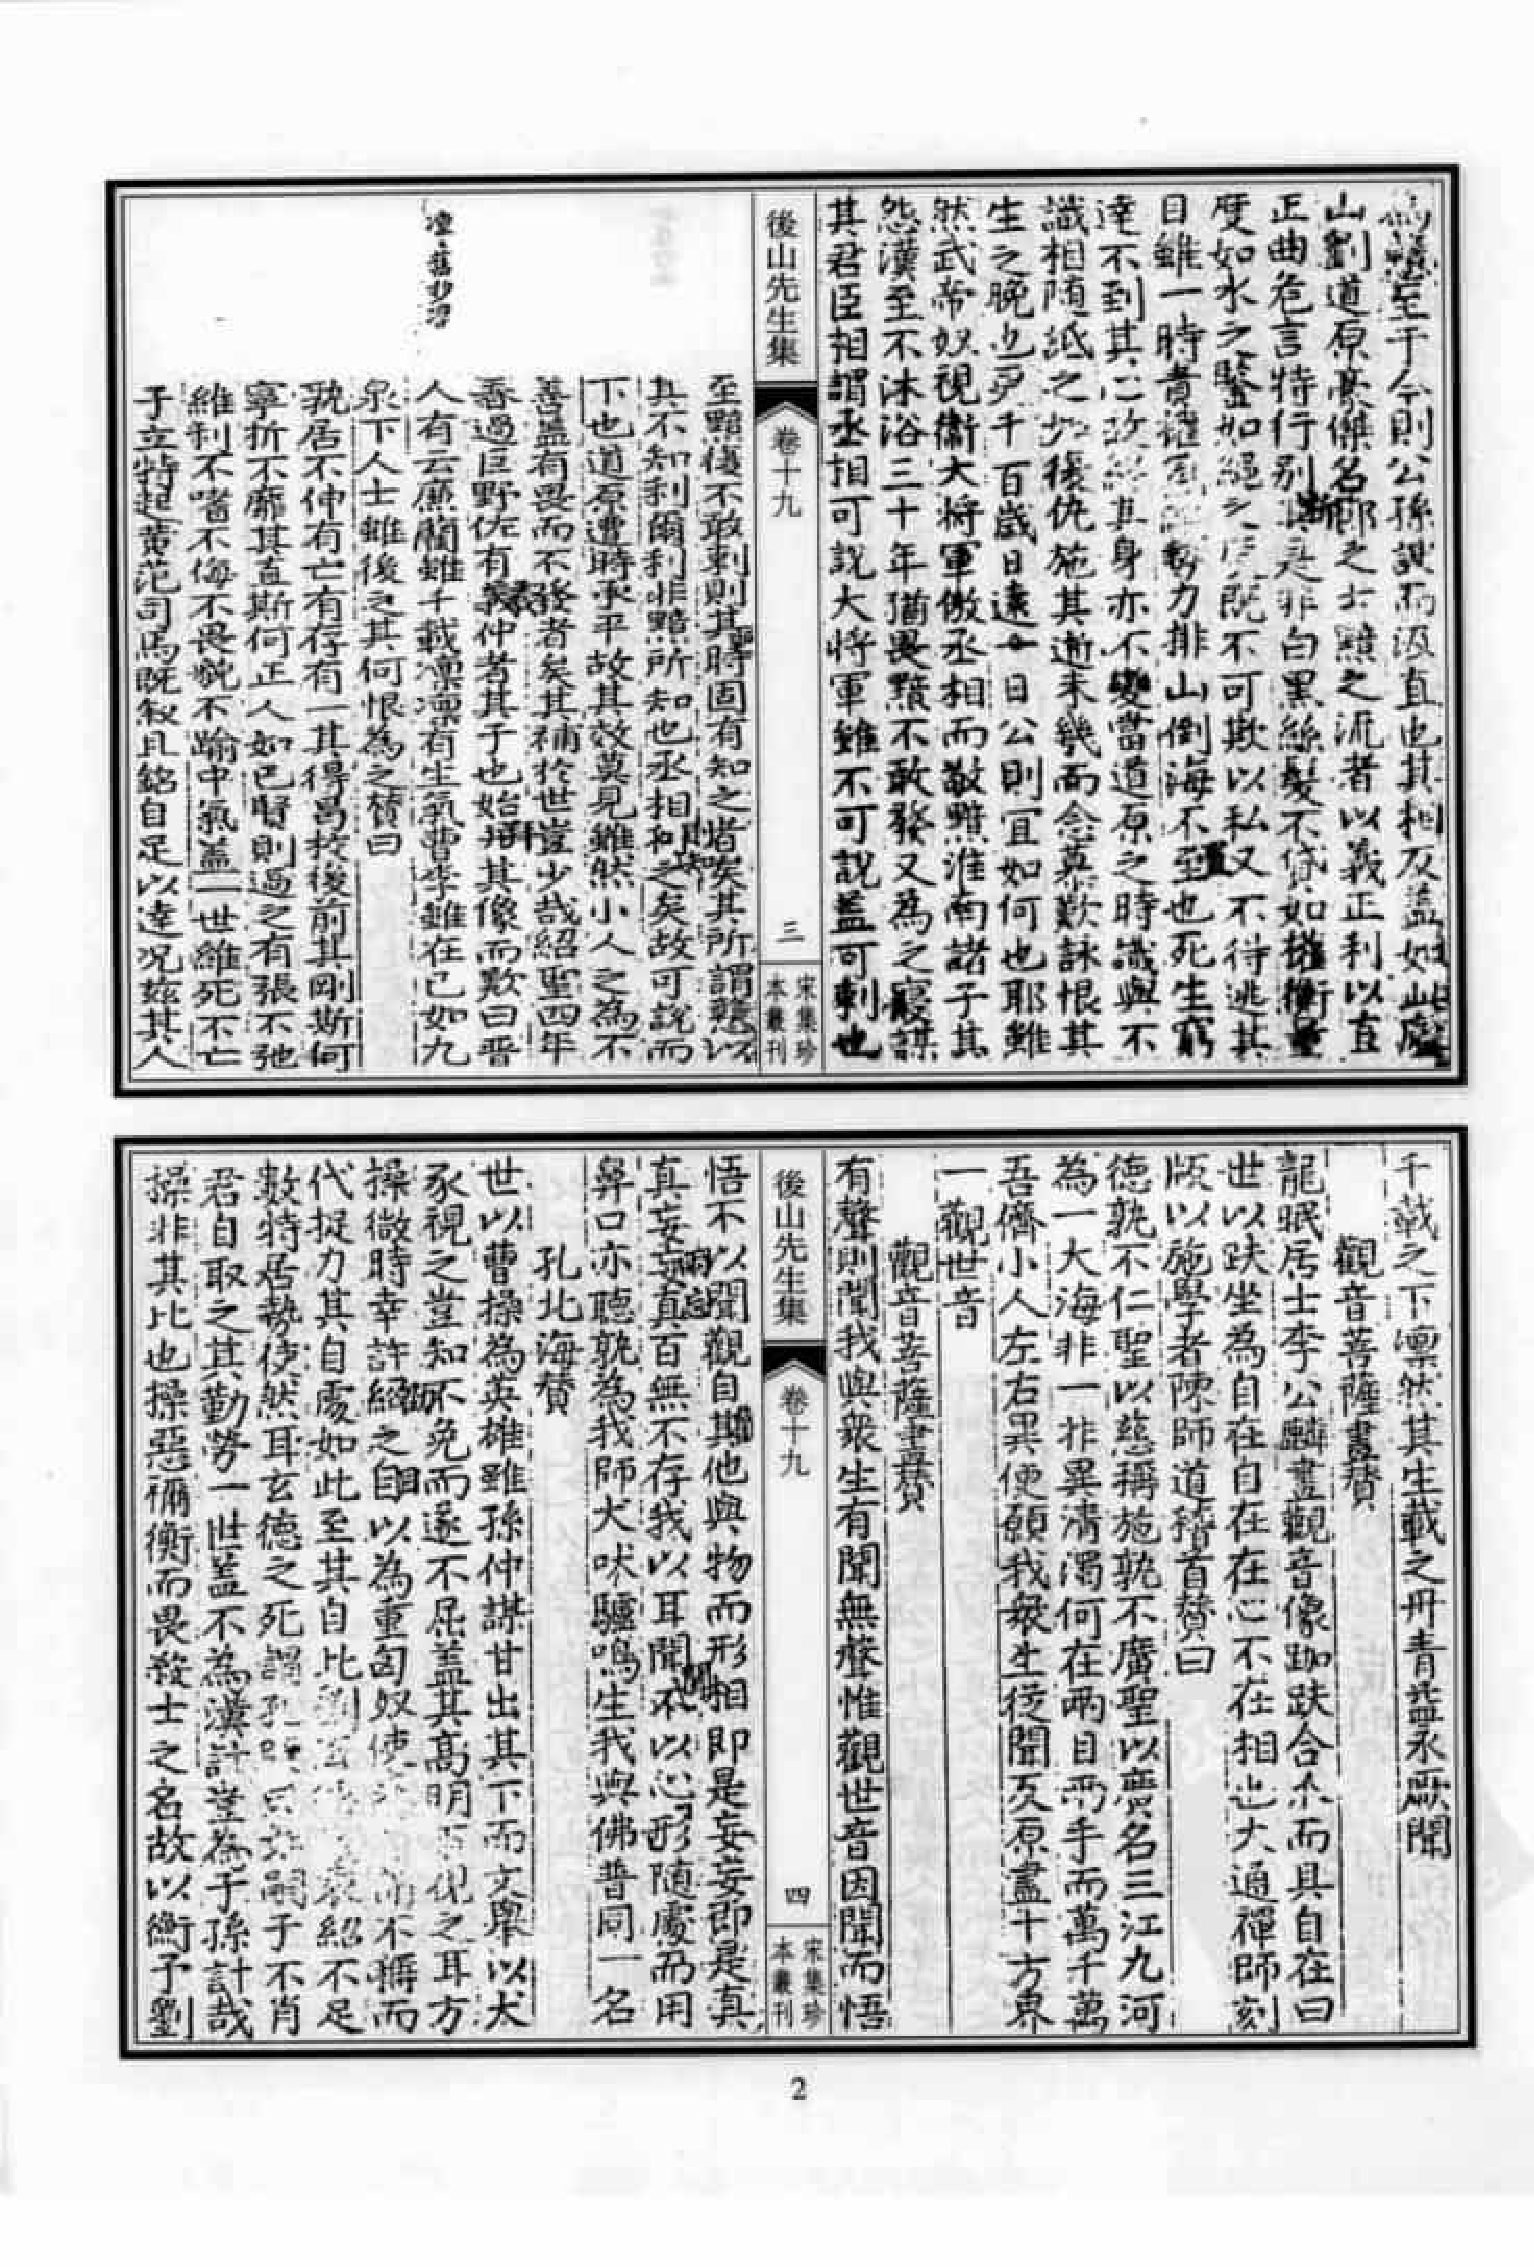 至于今則公孫説而汲直也其相反蓋如此廬
山劉道原豪傑名節之士黯之流者以義正利以直
正曲危言特行别是非白黑絲髮不貸如權衡量
度如水之鑒如繩之既不可欺以私又不待逃其
目雖一時貴權勢力排山倒海不至也死生窮
達不到其心故其身亦不變當道原之時識與不
識相随紙之如復仇施其逝未幾而念慕歎詠恨其
生之晚也千百歲日遠一日公則宜如何也耶雖
然武帝奴視衛大將軍傲丞相而敬黯淮南諸子其
怨漢至不沐浴三十年猶畏黯不敢發又為之寢謀
其君臣相謂丞相可説大將軍雖不可説蓋可刺也
後山先生集
卷十九
三
宋集珍本叢刊
至黯復不敢刺則其時固有知之者矣其所謂戇以
其不知利爾利非黯所知也丞相知之矣故可説而
下也道原遭時承平故其效莫見雖然小人之為不
善蓋有畏而不發者矣其補於世豈少哉紹聖四年
春過巨野佐有羲仲者其子也始拜其像而歎曰晋
人有云廉藺雖千載凛凛有生氣曹李雖在已如九
泉下人士雖後之其何恨為之贊曰
孰居不仲有亡有存有一其得曷挍後前其剛斯何
寧折不靡其直斯何正人如己賢則過之有張不弛
維利不嗜不侮不畏貌不踰中氣蓋一世維死不亡
子立特起黄范司馬既叙且銘自足以達况兹其人
千載之下凛然其生載之丹青益永厥聞
觀音菩薩畫贊
龍眠居士李公麟畫觀音像跏趺合爪而具自在曰
世以趺坐為自在自在在心不在相也大通禪師刻
版以施學者陳師道稽首贊曰
德孰不仁聖以慈稱施孰不廣聖以廣名三江九河
為一大海非一非異清濁何在兩目兩手而萬千萬
吾儕小人左右異使願我衆生從聞反原盡十方界
一觀世音
觀音菩薩畫贊
有聲則聞我與衆生有聞無聲惟觀世音因聞而悟
後山先生集
卷十九
四
宋集珍本叢刊
悟不以聞觀自其他與物而形相即是妄妄即是真
真妄妄真百無不存我以耳聞不以心形随處而用
鼻口亦聽孰為我師犬吠驢鳴生我與佛普同一名
孔北海贊
世以曹操為英雄雖孫仲謀甘出其下而文舉以犬
豕視之豈知不免而遂不屈蓋其高明下視之耳方
操微時幸許紹之自以為重匈奴使不稱而
代捉刀其自處如此至其自比劉袁紹不足
數特居勢使然耳玄德之死謂孔嗣子不肖
君自取之其勤勞一世蓋不為漢計豈為子孫計哉
操非其比也操惡禰衡而畏殺士之名故以衡予劉
2